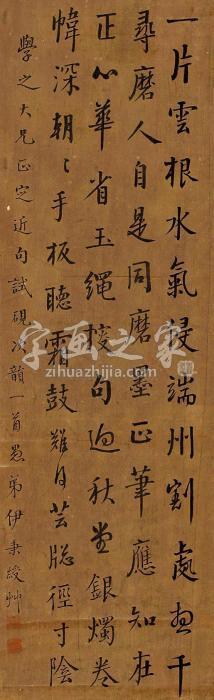 一片雲根水氣浸端州割處直千
尋磨人自是同磨墨正筆應知在
正心華省玉繩搜句迥秋堂銀燭卷
幃深朝〻手板聽霜鼓難得芸牕徑寸陰
學之大兄正定近句試硯次韻一首愚弟伊秉綬艸
字画之家
zihuazhijia.com